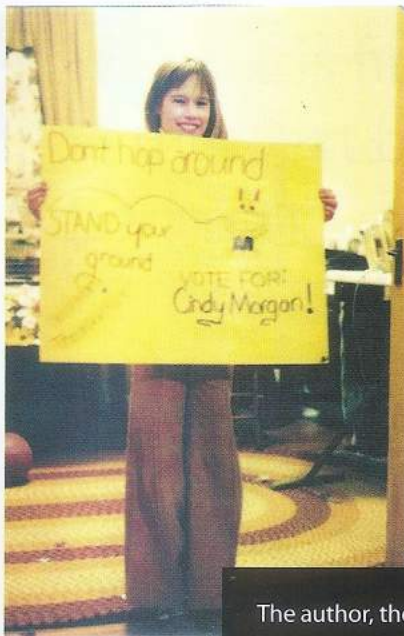 Dont hop around
STAND your
ground
VOTE FOR:
Cindy Morgan!
The author, the